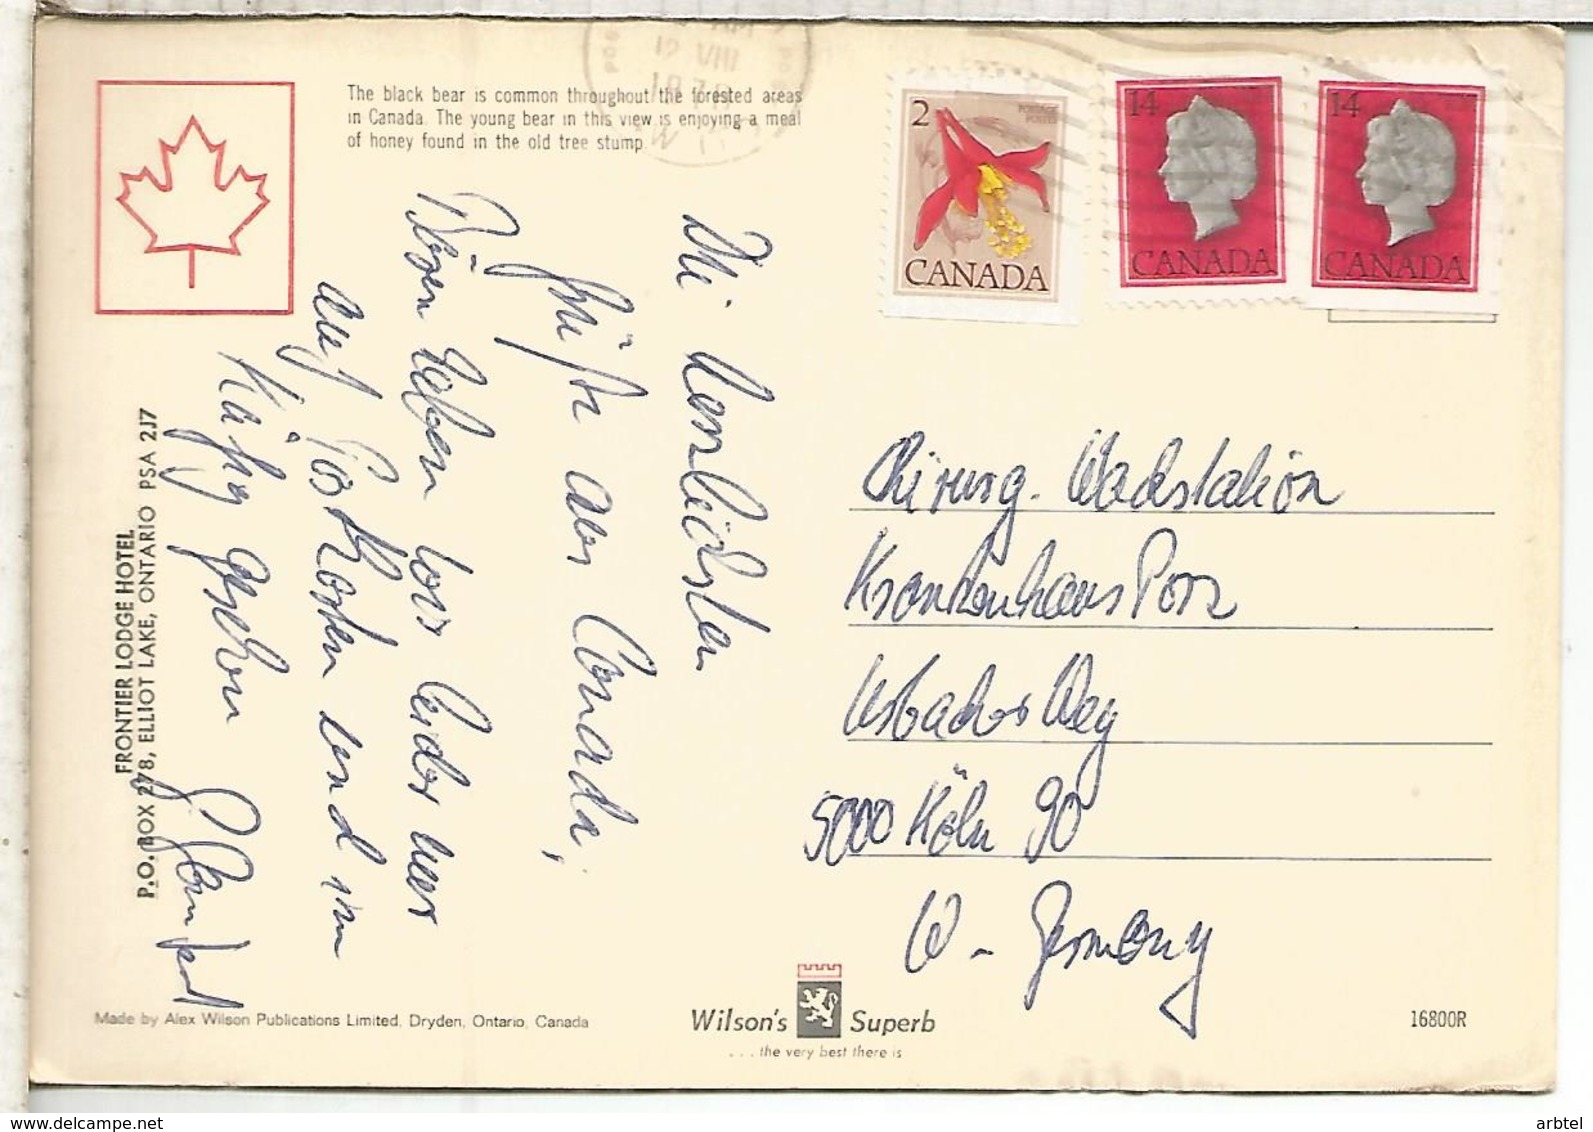 The black bear is common throughout the forested areas
in Canada. The young bear in this view is enjoying a meal
of honey found in the old tree stump.
12 VIII
2
POSTAGE
POSTES
CANADA
14
CANADA
14
CANADA
Die herzlichsten
Grüße aus Canada,
Bären haben wir leider nur
auf Postkarten und im
Käfig gesehen
Chirurg. Wachstation
Krankenhaus Porz
Urbacher Weg
5000 Köln 90
W - Germany
FRONTIER LODGE HOTEL
P.O. BOX 278, ELLIOT LAKE, ONTARIO P5A 2J7
Made by Alex Wilson Publications Limited, Dryden, Ontario, Canada
Wilson's Superb
. . . the very best there is
16800R
www.delcampe.net
arbtel